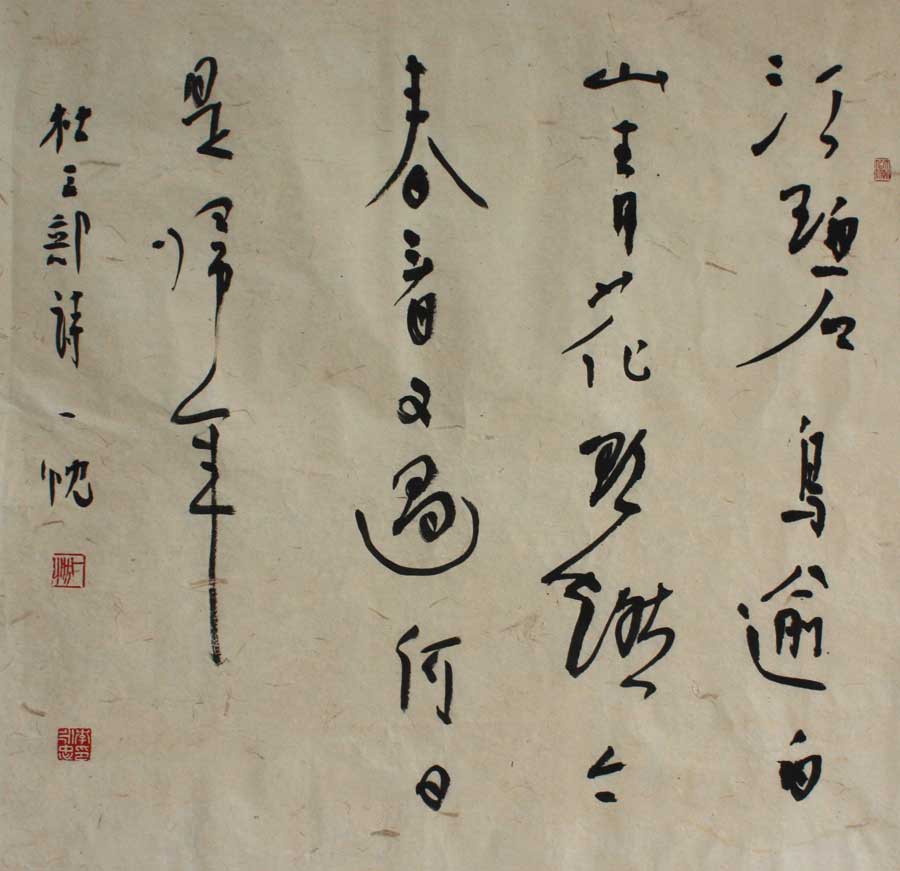 江碧鳥逾白
山青花欲燃今
春看又過何日
是歸年
杜工部詩 一